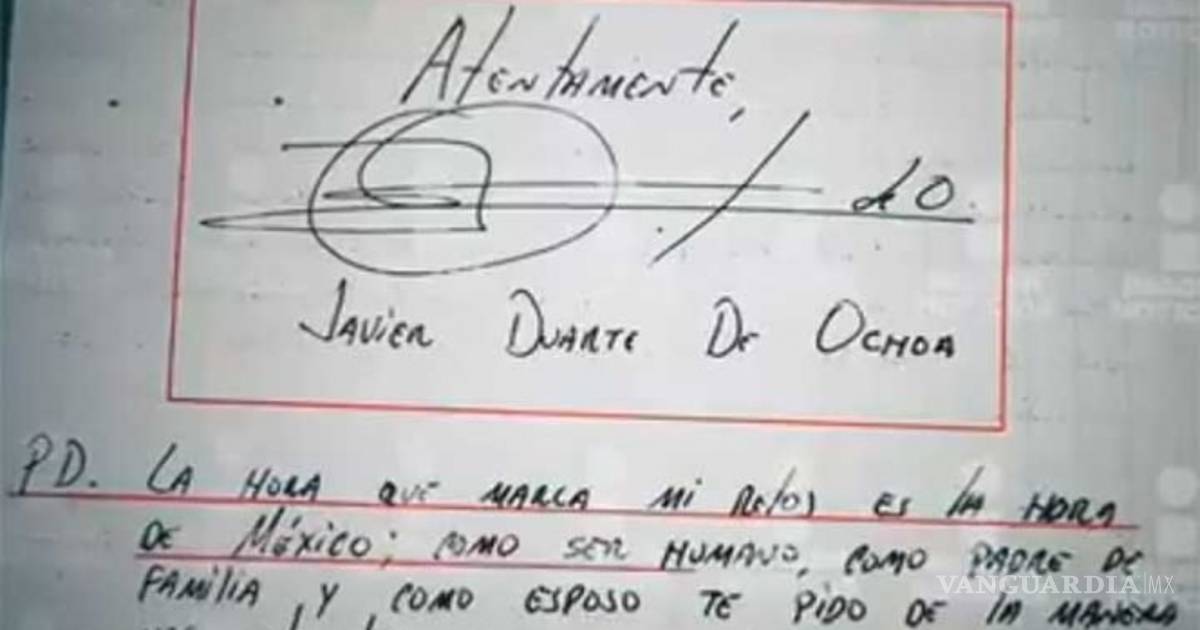 Atentamente,
d O.
Javier Duarte De Ochoa
PD. La hora que marca mi reloj es la hora
de México; como ser humano, como padre de
familia, y como esposo te pido de la manera
VANGUARDIA|MX